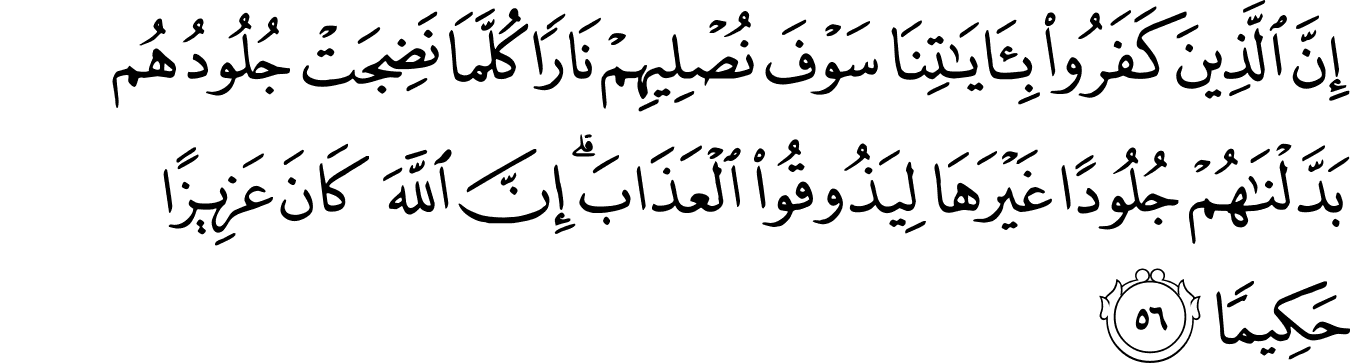 إِنَّ ٱلَّذِينَ كَفَرُوا۟ بِـَٔايَـٰتِنَا سَوْفَ نُصْلِيهِمْ نَارًا كُلَّمَا نَضِجَتْ جُلُودُهُم
بَدَّلْنَـٰهُمْ جُلُودًا غَيْرَهَا لِيَذُوقُوا۟ ٱلْعَذَابَ ۗ إِنَّ ٱللَّهَ كَانَ عَزِيزًا
حَكِيمًا ٥٦